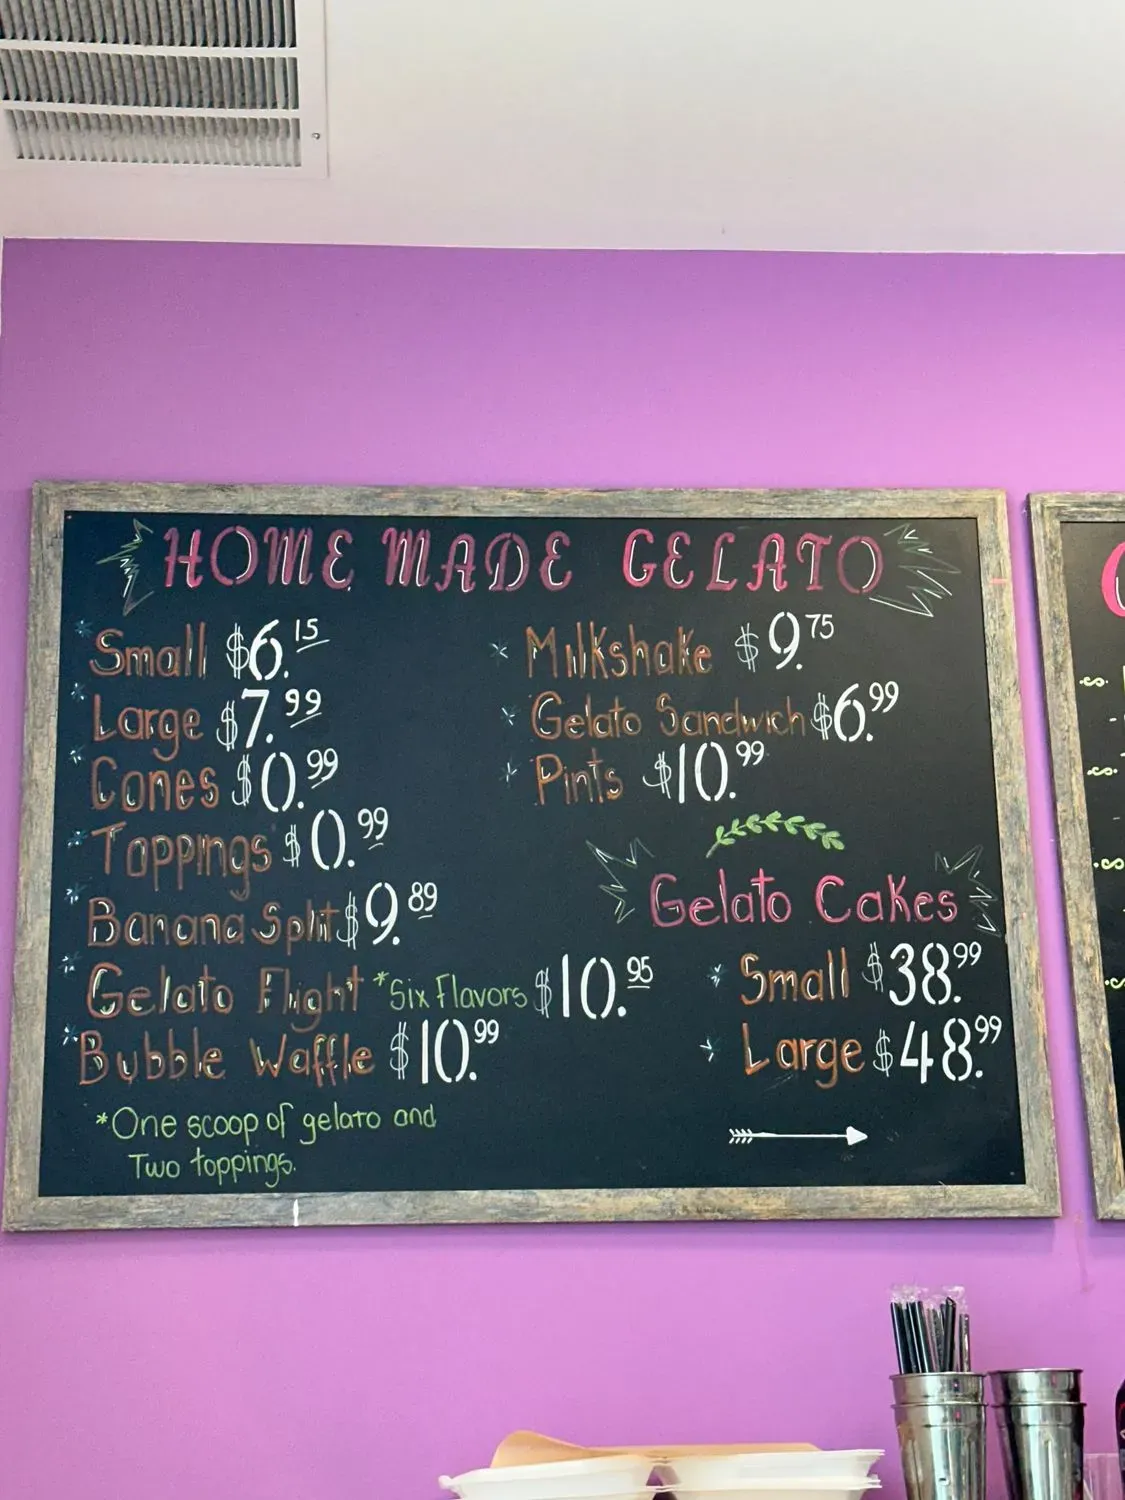 HOME MADE GELATO
Small $6.15
Large $7.99
Cones $0.99
Toppings $0.99
Banana Split $9.89
Gelato Flight *Six Flavors $10.95
Bubble Waffle $10.99
*One scoop of gelato and
Two toppings.
Milkshake $9.75
Gelato Sandwich $6.99
Pints $10.99
Gelato Cakes
Small $38.99
Large $48.99